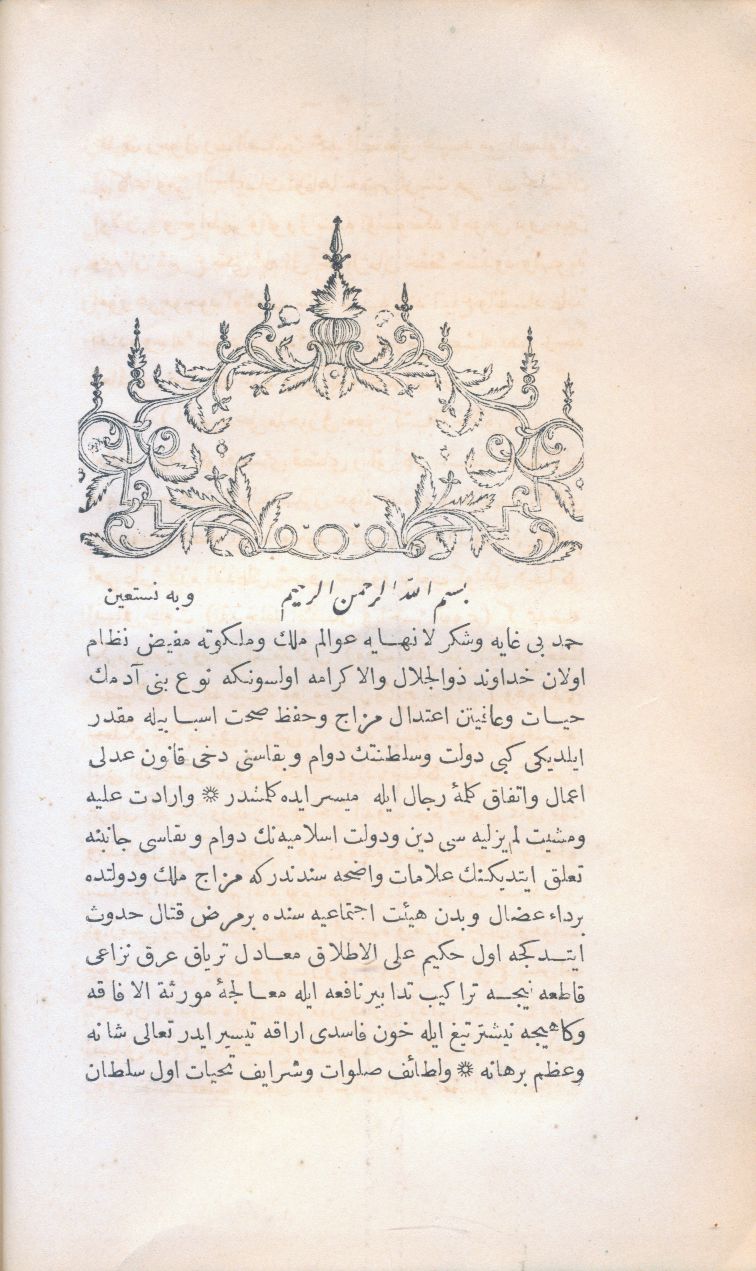 بسم الله الرحمن الرحيم وبه نستعين
حمد بى غايه وشكر لا نهـايه عوالم ملك وملكوته مفيض نظام
اولان خداوند ذوالجلال والاكرامه اولسونكه نوع بنى آدمك
حيـات وعافيتن اعتدال مزاج وحفظ صحت اسبـابيله مقدر
ايلديكى كبى دولت وسلطنتك دوام وبقاسنى دخى قانون عدلى
اعمال واتفاق كلمۀ رجال ايله ميسر ايده كلمشدر ۞ وارادت عليه
ومشيت لم يزليه سى دين ودولت اسلاميه نك دوام وبقاسى جانبنه
تعلق ايتديكنك علامات واضحه سندندركه مزاج ملك ودولتده
برداء عضال وبدن هيئت اجتماعيه سنده برمرض قتال حدوث
ايتـدكجه اول حكيم على الاطلاق معـادل ترياق عرق نزاعى
قاطعه نيجـه تراكيب تدابير نافعه ايله معـالجۀ مورثة الافاقه
وكاهيجه نيشتر تيغ ايله خون فاسدى اراقه تيسير ايدر تعالى شانه
وعظم برهانه ۞ ولطائف صلوات وشرايف تحيات اول سلطان